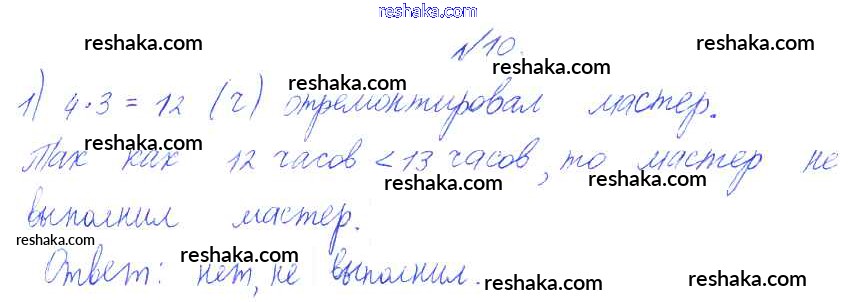 reshaka.com
reshaka.com
№10.
reshaka.com
reshaka.com
1) 4·3=12 (ч) отремонтировал мастер.
reshaka.com
Так как 12 часов < 13 часов, то мастер не
reshaka.com
reshaka.com
выполнил мастер.
reshaka.com
reshaka.com
Ответ: нет, не выполнил.
reshaka.com
reshaka.com